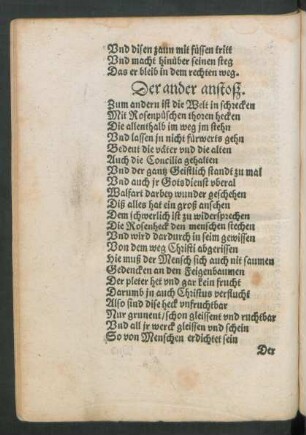 Vnd disen zaun mit füssen tritt
Vnd macht hinüber seinen steg
Das er bleib in dem rechten weg.
Der ander anstoß.
Zum andern ist die Welt in schrecken
Mit Rosenpüschen thoren hecken
Die allenthalb im weg jm stehn
Vnd lassen jn nicht fürwerts gehn
Bedeut die väter vnd die alten
Auch die Concilia gehalten
Vnd der gantz Geistlich standt zu mal
Vnd auch jr Gotsdienst vberal
Walfart darbey wunder geschehen
Diß alles hat ein groß ansehen
Dem schwerlich ist zu widersprechen
Die Rosenheck den menschen stechen
Vnd wird dardurch in seim gewissen
Von dem weg Christi abgerissen
Hie muß der Mensch sich auch nit saumen
Gedencken an den Feigenbaumen
Der pleter het vnd gar kein frucht
Darumb jn auch Christus verflucht
Also sind dise heck vnfruchtbar
Nur grunent/schon gleissent vnd ruchtbar
Vnd all jr werck gleissen vnd schein
So von Menschen erdichtet sein
Der